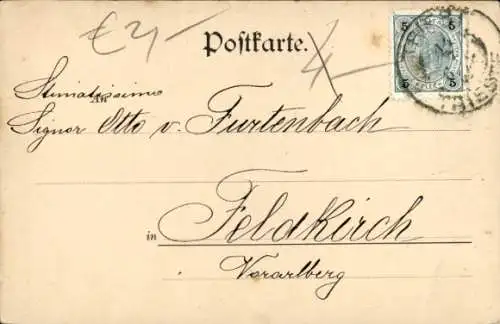 € 2,-
Postkarte.
5 5
5 5
TRIEST
TRIESTE
Stimatissimo
An
Signor Otto v. Furtenbach
Feldkirch
in
Vorarlberg